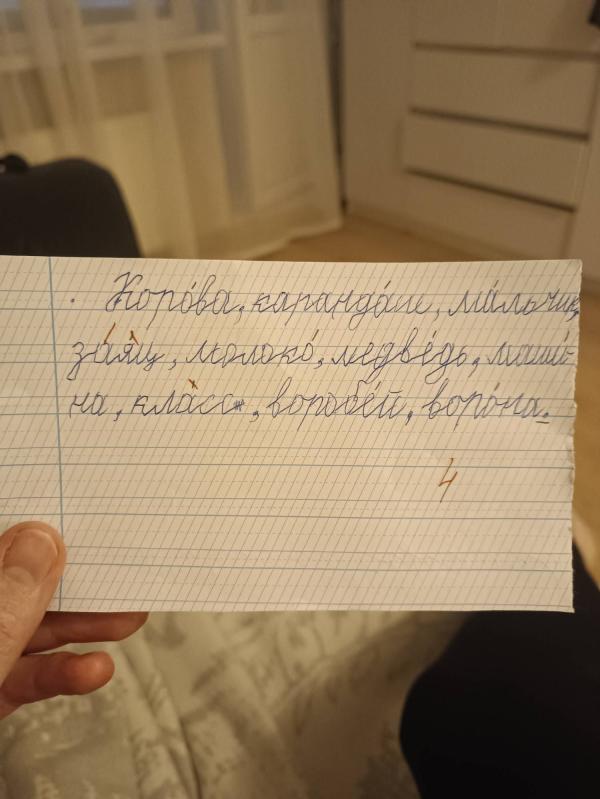 Коро́ва, каранда́ш, ма́льчик,
за́яц, молоко́, медве́дь, маши́-
на, класс, воробе́й, воро́на.
4